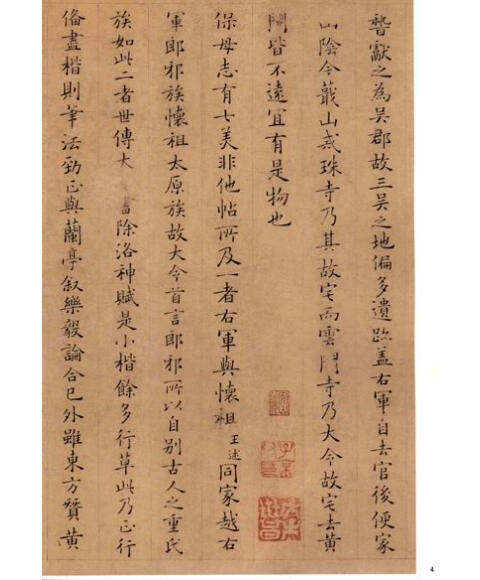 獻之為吳郡故三吳之地偏多遺跡蓋右軍自去官後便家
山陰今蕺山戒珠寺乃其故宅而雲門寺乃大令故宅去黃
閍皆不遠宜有是物也
保母志有七美非他帖所及一者右軍與懷祖王述同家越右
軍郎邪族懷祖太原族故大令首言郎邪所以自別古人之重氏
族如此二者世傳大書除洛神賦是小楷餘多行草此乃正行
俻盡楷則筆法勁正與蘭亭叙樂毅論合已外雖東方贊黃
4